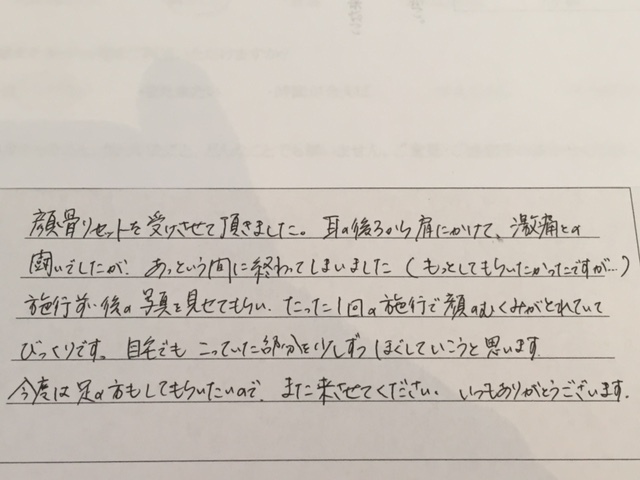 顔骨リセットを受けさせて頂きました。耳の後ろから肩にかけて、激痛との
闘いでしたが、あっという間に終わってしまいました(もっとしてもらいたかったですが…)
施行前・後の写真を見せてもらい、たった1回の施行で顔のむくみがとれていて
びっくりです。自宅でもこっていた部分を少しずつほぐしていこうと思います
今度は足の方もしてもらいたいので、また来させてください。いつもありがとうございます。